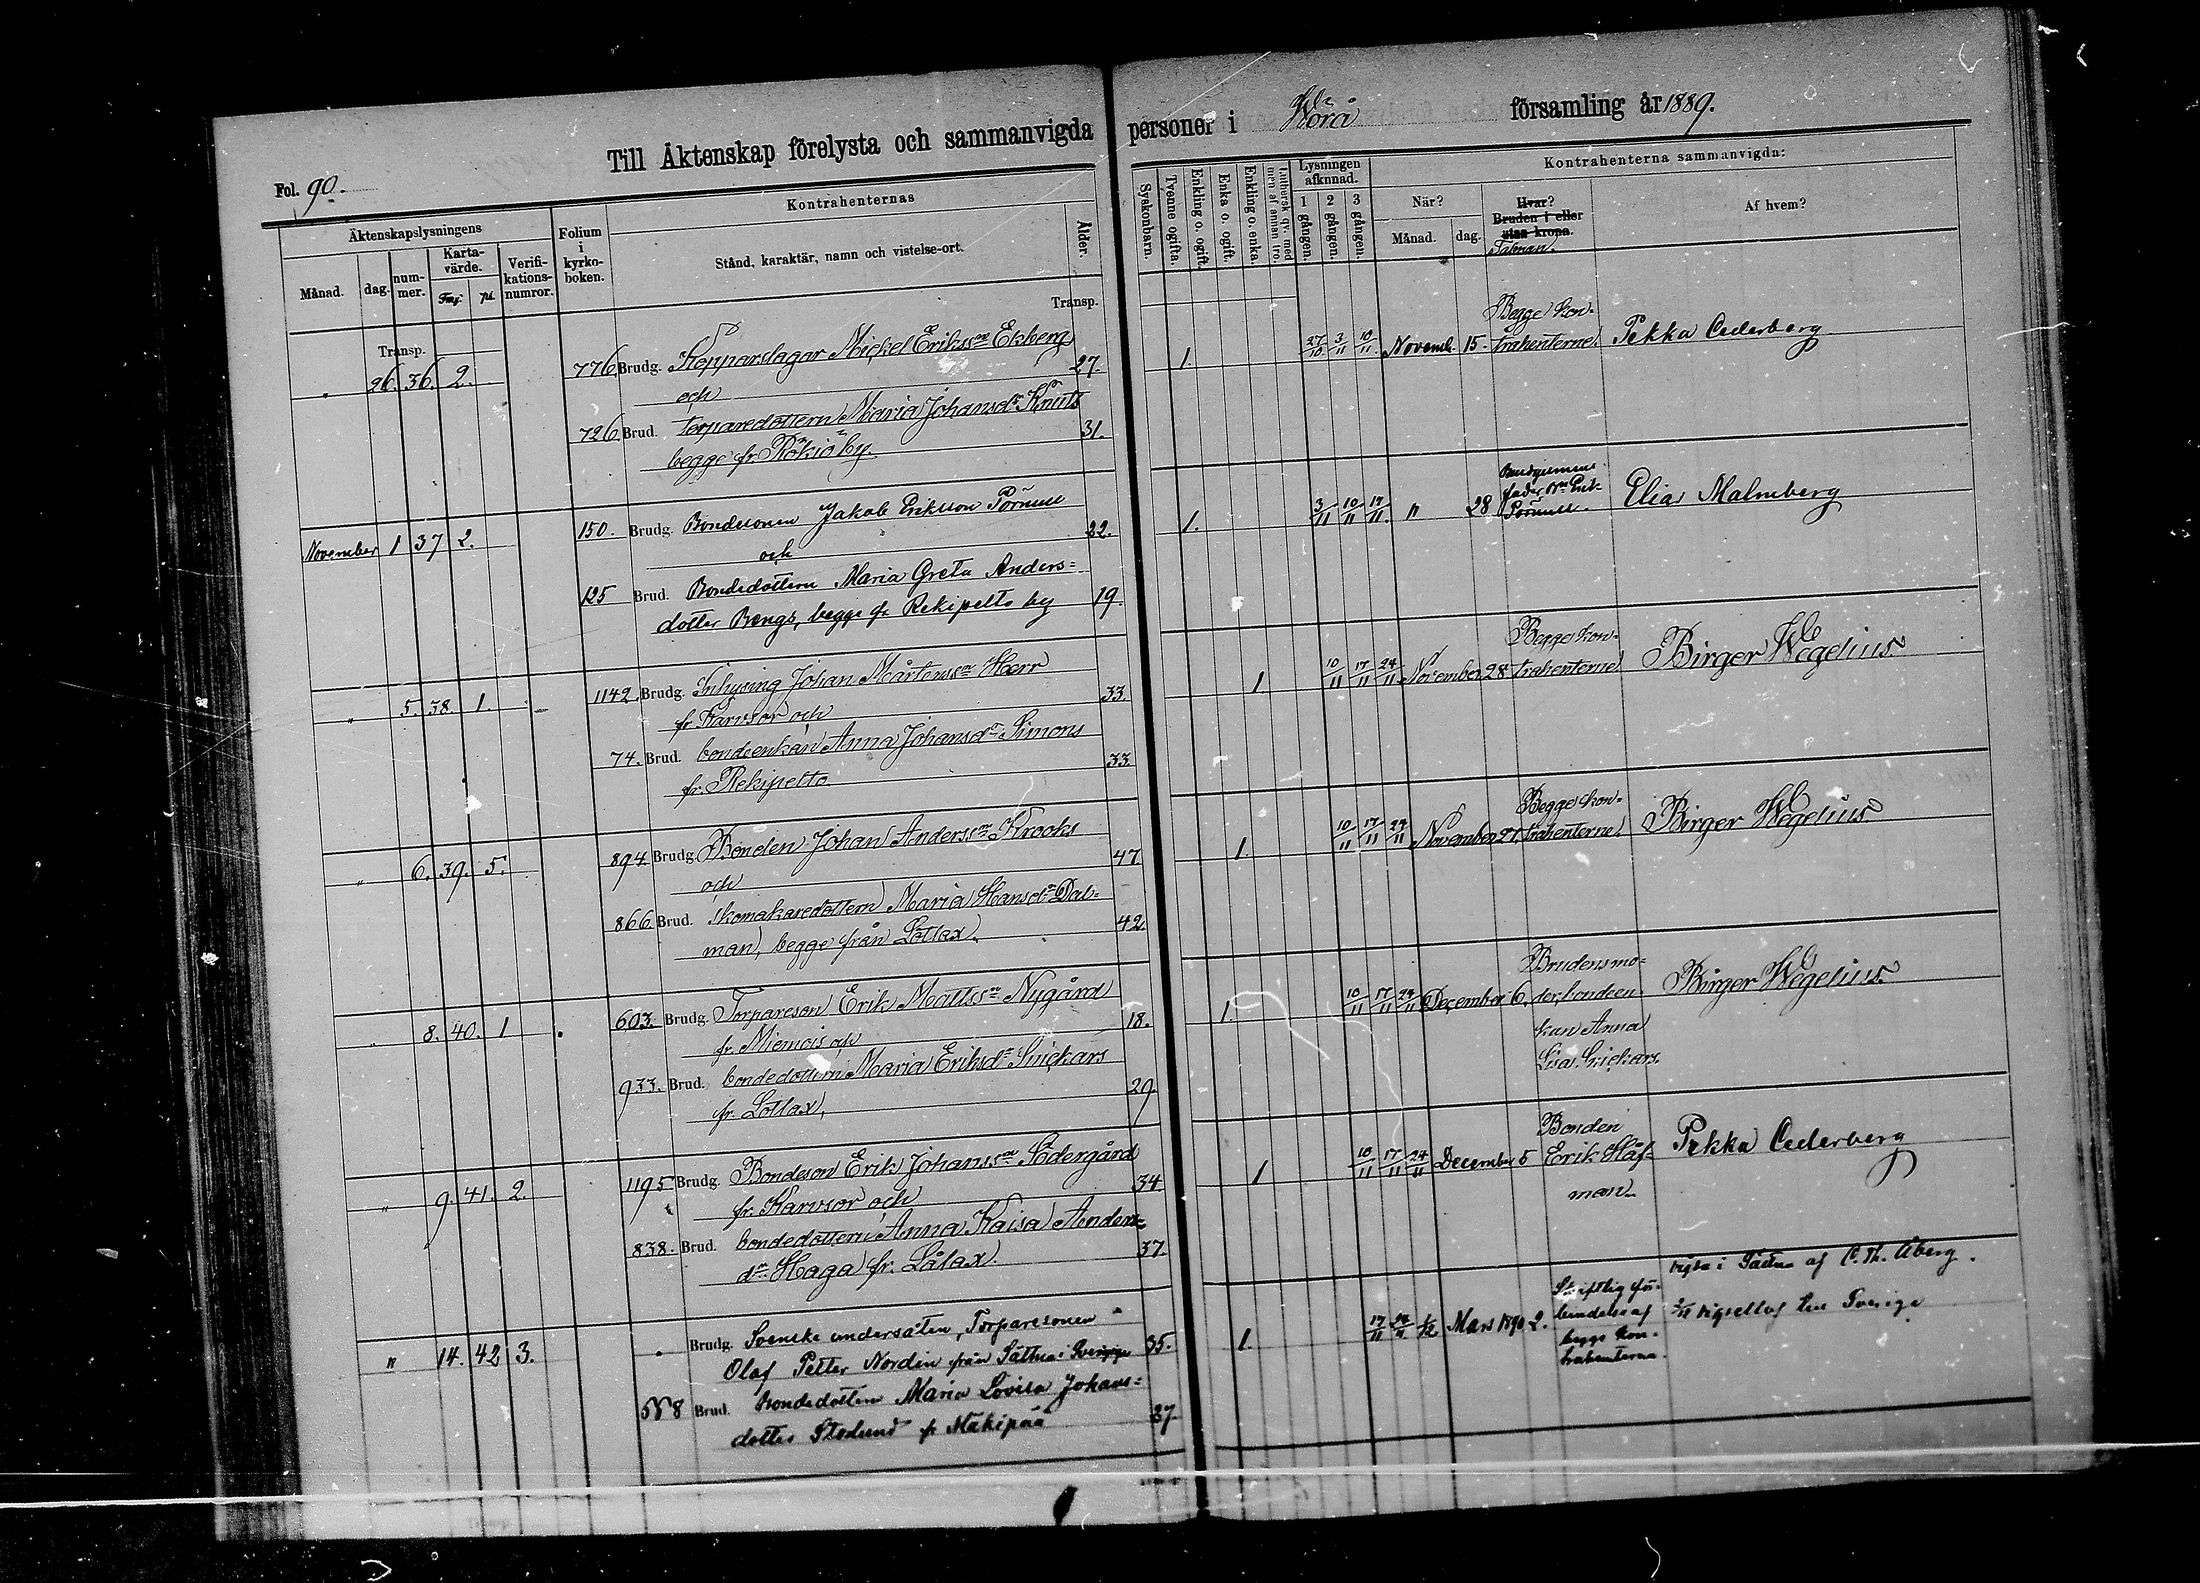 Till Äktenskap förelysta och sammanvigda personer i Wörå församling år 1889.
Fol. 90.
Äktenskapslysningens
Månad. dag. num-mer. Karta-värde. Fmg. pi. Verifi-kations-numror.
Folium i kyrko-boken.
Kontrahenternas
Stånd, karaktär, namn och vistelse-ort.
Ålder.
Syskonbarn. Tvenne ogifta. Enkling o. ogift. Enka o. ogift. Enkling o. enka. Luthersk qv. med men af annan tro.
Lysningen afknnad.
1 gången. 2 gången. 3 gången.
Kontrahenterna sammanvigda:
När? Månad. dag.
Hvar? Bruden i eller utan krona.
Talman.
Af hvem?
Transp. Transp.
" 26. 36. 2. 776. Brudg. Kopparslagar Mickel Erikssn Ekberg 27. 1. 27/10 3/11 10/11 Novemb. 15. Begge kon-
och trahenterne. Pekka Cederberg
726. Brud. torparedottern Maria Johansdr Knuts 31.
begge fr. Rökiö by.
November 1 37 2. 150. Brudg. Bondesonen Jakob Eriksson Pörnull 22. 1. 3/11 10/11 17/11 " 28 Brudgummens
och fader Bn Erik
Pörnull. Elia Malmberg
125 Brud. Bondedottern Maria Greta Anders=
dotter Bengs, begge fr Rekipelto by 19.
" 5. 38. 1. 1142. Brudg. Inhysing Johan Mårtenssn Herr 33. 1. 10/11 17/11 24/11 November 28 Begge kon-
fr Karvsor och trahenterne. Birger Wegelius
74. Brud. bondeenkan Anna Johansdr Simons 33
fr. Rekipelto
" 6. 39. 5. 894. Brudg. Bonden Johan Anderssn Krooks 47 1. 10/11 17/11 24/11 November 27. Begge kon-
och trahenterne. Birger Wegelius
866. Brud. skomakaredottern Maria Hansdr Dal=
man, begge från Lotlax. 42.
" 8. 40. 1 603. Brudg. Torpareson Erik Mattssn Nygård 18. 1. 10/11 17/11 24/11 December 6. Brudens mo-
fr. Miemois och der, bondeen-
kan Anna
Lisa Snickars. Birger Wegelius
933. Brud. bondedottern Maria Eriksdr Snickars 29
fr. Lotlax,
" 9. 41. 2. 1195 Brudg. Bondeson Erik Johanssn Södergård 34 1 10/11 17/11 24/11 December 5 Bonden
fr. Karvsor och Erik Håf-
man. Pekka Cederberg
838. Brud. bondedottern Anna Kaisa Anders=
dr. Haga fr. Lålax. 37.
" 14. 42 3. Brudg. Svenske undersåten, Torparesonen
Olof Petter Nordin från Sättna i Sverige 35. 1. 17/11 24/11 1/12 Mars 1890 2. Skriftlig för-
bindelse af
begge kon-
trahenterna.
vigda i Sättna af C. Th. Åberg.
Brud. Bondedottern Maria Lovisa Johans=
dotter Stolund fr Mäkipää 27.